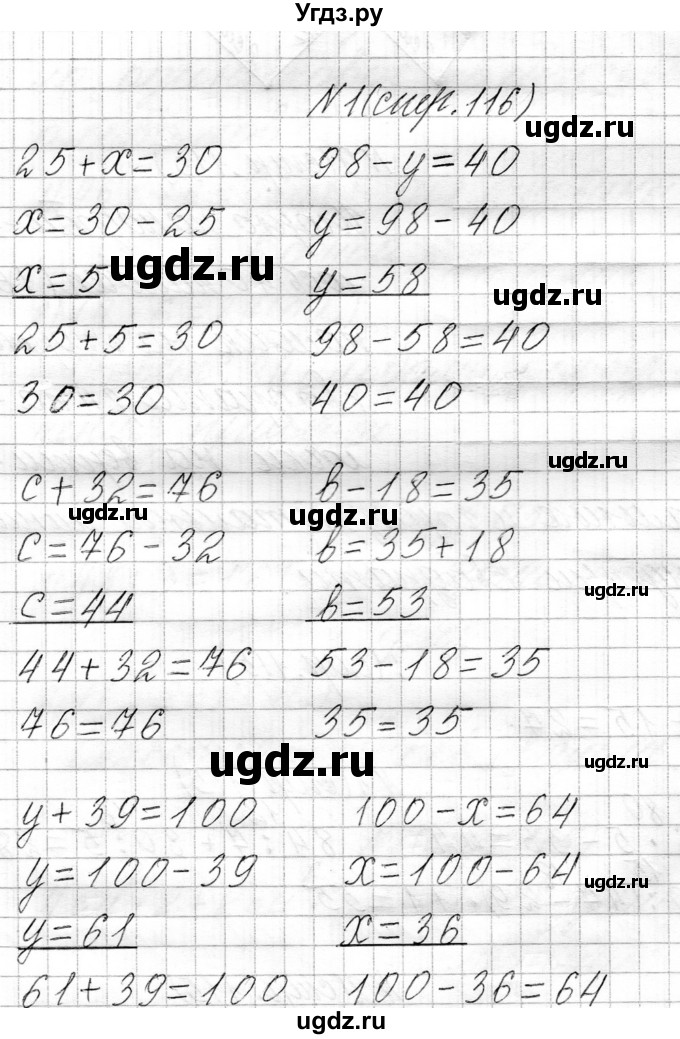 Угдз.ру
N1(стр.116)
25+x=30 98-y=40
x=30-25 y=98-40
x=5 y=58
25+5=30 98-58=40
30=30 40=40
c+32=76 b-18=35
c=76-32 b=35+18
c=44 b=53
44+32=76 53-18=35
76=76 35=35
y+39=100 100-x=64
y=100-39 x=100-64
y=61 x=36
61+39=100 100-36=64
ugdz.ru
ugdz.ru
ugdz.ru
ugdz.ru
ugdz.ru
ugdz.ru
ugdz.ru
ugdz.ru
ugdz.ru
ugdz.ru
ugdz.ru